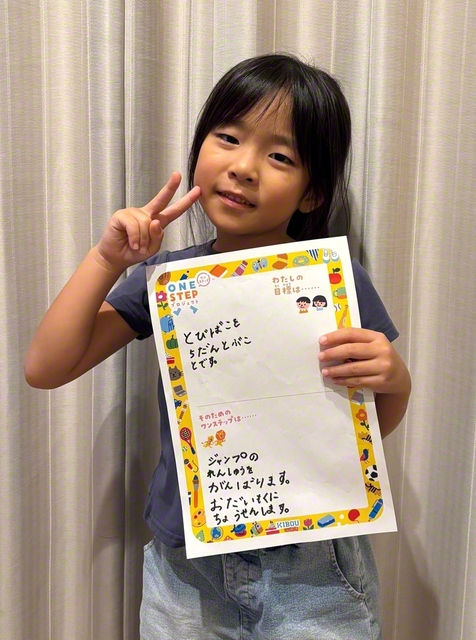 ONE
STEP
プロジェクト
わたしの
目標は……
とびばこを
5だんとぶこ
とです。
そのための
ワンステップは……
ジャンプの
れんしゅうを
がんばります。
おだいもくに
ちょうせんします。
KIBOU